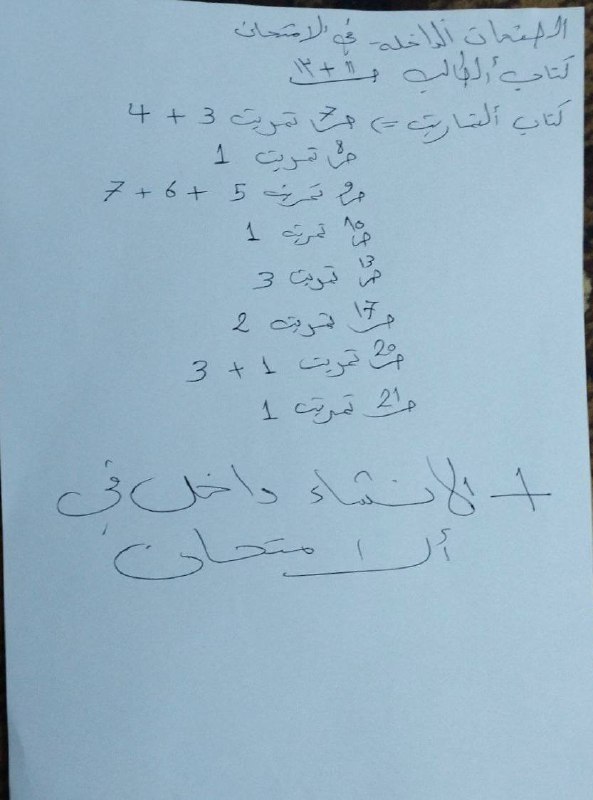 الصفحات الداخله في الامتحان
كتاب ألطالب ص ١١ + ١٣
كتاب ألتمارين <= ص7 تمرين 3 + 4
ص8 تمرين 1
ص9 تمرين 5 + 6 + 7
ص10 تمرين 1
ص13 تمرين 3
ص17 تمرين 2
ص20 تمرين 1 + 3
ص21 تمرين 1
+ الانشاء داخل في
ألامتحان